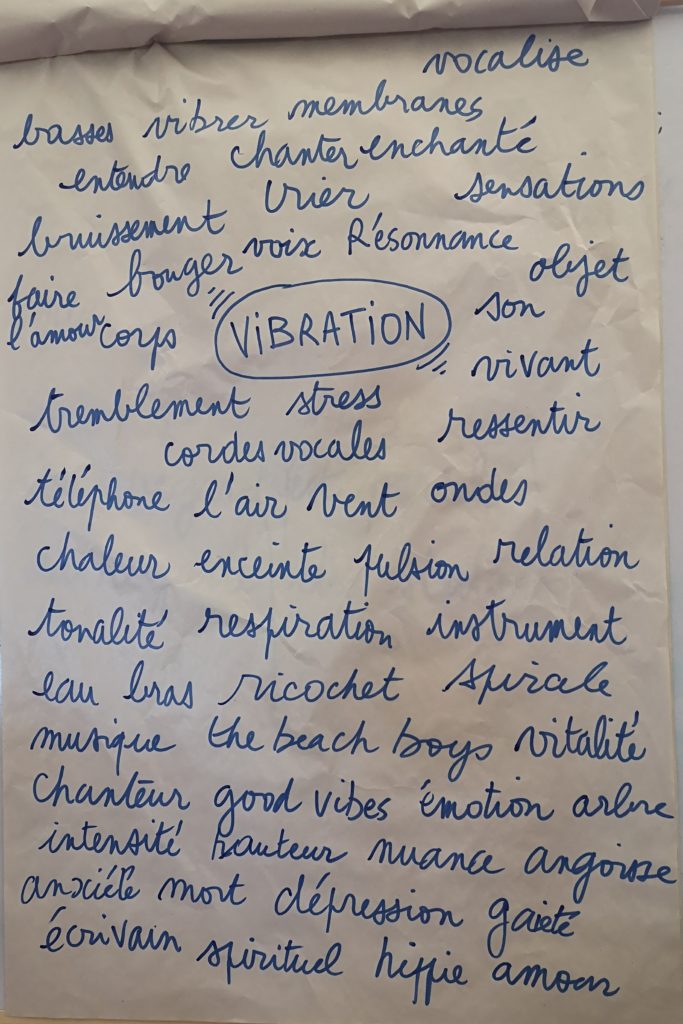 vocalise
basses vibrer membranes
entendre chanter enchanté
bruissement crier sensations
faire bouger voix Résonnance objet
l'amour corps VIBRATION son
vivant
tremblement stress ressentir
cordes vocales
téléphone l'air vent ondes
chaleur enceinte pulsion relation
tonalité respiration instrument
eau bras ricochet spirale
musique the beach boys vitalité
chanteur good vibes émotion arbre
intensité hauteur nuance angoisse
anxiété mort dépression gaieté
écrivain spirituel hippie amour